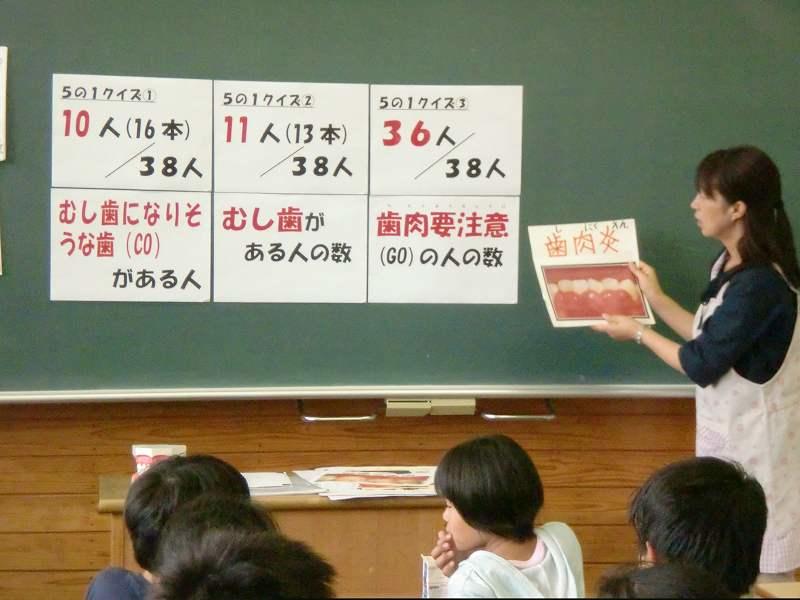 5の1クイズ①
10人(16本)
／38人
むし歯になりそ
うな歯(CO)
がある人
5の1クイズ②
11人(13本)
／38人
むし歯が
ある人の数
5の1クイズ③
36人
／38人
歯肉要注意
(GO)の人の数
し にく えん
歯肉炎